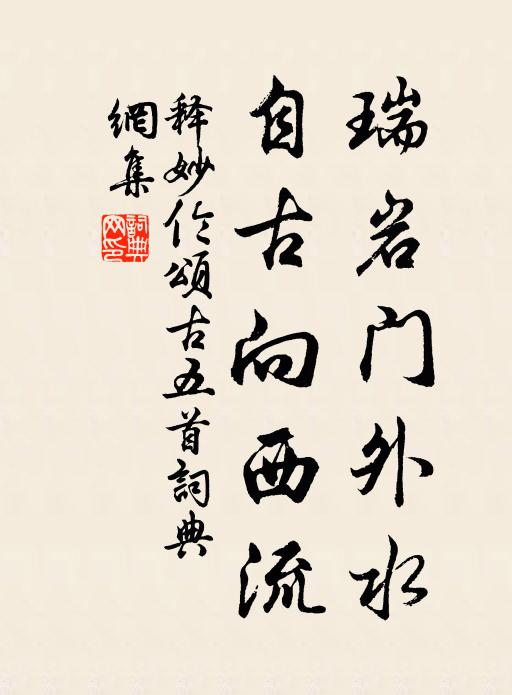 瑞岩门外水
自古向西流
释妙伦頌古五首詞典
網集
詞典
网印